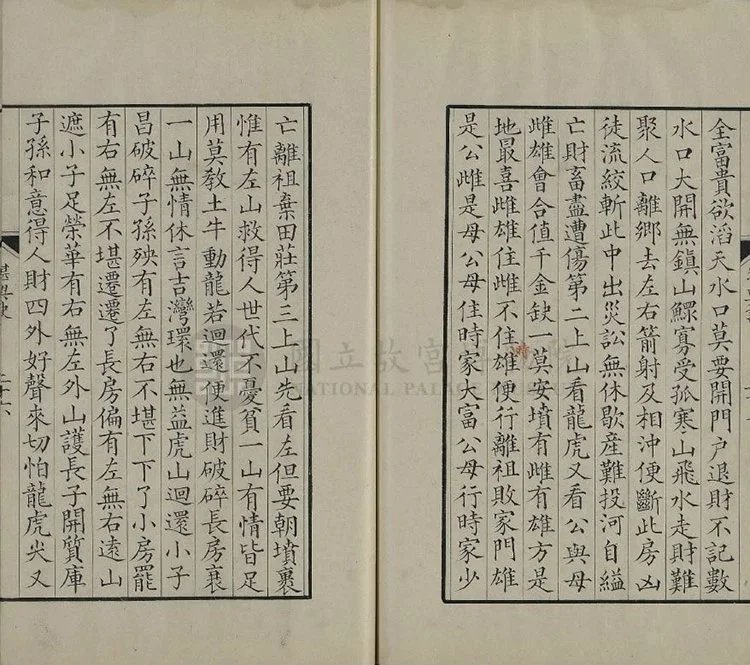 全富貴欲滔天水口莫要開門戶退財不記數
水口大開無鎮山鰥寡受孤寒山飛水走財難
聚人口離鄉去左右箭射及相沖便斷此房凶
徒流絞斬此中出災訟無休歇産難投河自縊
亡財畜盡遭傷第二上山看龍虎又看公與母
雌雄會合值千金缺一莫安墳有雌有雄方是
地最喜雌雄住雌不住雄便行離祖敗家門雄
是公雌是母公母住時家大富公母行時家少
亡離祖棄田莊第三上山先看左但要朝墳裹
惟有左山救得人世代不憂貧一山有情皆足
用莫教土牛動龍若迴還便進財破碎長房衰
一山無情休言吉灣環也無益虎山迴還小子
昌破碎子孫殃有左無右不堪下下了小房罷
有右無左不堪遷遷了長房偏有左無右遠山
遮小子足榮華有右無左外山護長子開質庫
子孫和意得人財四外好聲來切怕龍虎尖又
國立故宮博物院
NATIONAL PALACE